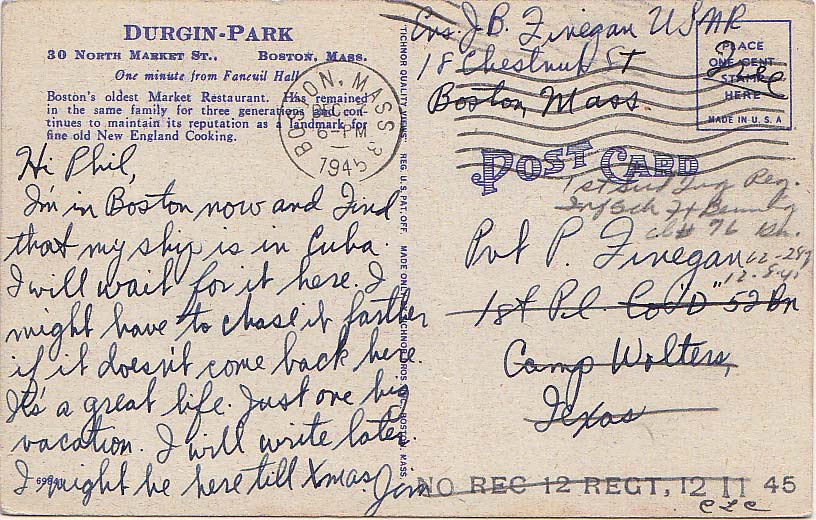 DURGIN-PARK
30 NORTH MARKET ST., BOSTON, MASS.
One minute from Faneuil Hall
Boston's oldest Market Restaurant. Has remained
in the same family for three generations and con-
tinues to maintain its reputation as a landmark for
fine old New England Cooking.
Hi Phil,
I'm in Boston now and find
that my ship is in Cuba.
I will wait for it here. I
might have to chase it farther
if it doesn't come back here.
It's a great life. Just one big
vacation. I will write later.
I might be here till Xmas. Jim
BOSTON, MASS. 3
DEC
6-PM
1945
TICHNOR QUALITY VIEWS REG. U.S. PAT. OFF. MADE ONLY BY TICHNOR BROS. INC., BOSTON, MASS.
Ens. J.B. Finegan USNR
18 Chestnut St
Boston, Mass
Free
PLACE
ONE CENT
STAMP
HERE
MADE IN U.S.A
POST CARD
1st Reg.
Inf Sch Ft Benning
Pvt P. Finegan
1st Pl. Co "D" 52 Bn
Camp Wolters,
Texas
NO REC 12 REGT, 12 11 45